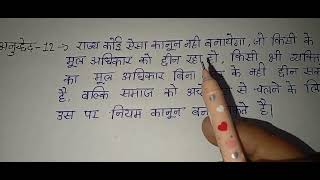 अनुच्छेद-12 → राज्य कोई ऐसा कानून नही बनायेगा, जो किसी के
मूल अधिकार को छीन रहा हो, किसी भी व्यक्ति
का मूल अधिकार बिना के नही छीन सक
है, बल्कि समाज को से चलने के लि
उस पर नियम कानून बना सकते है।